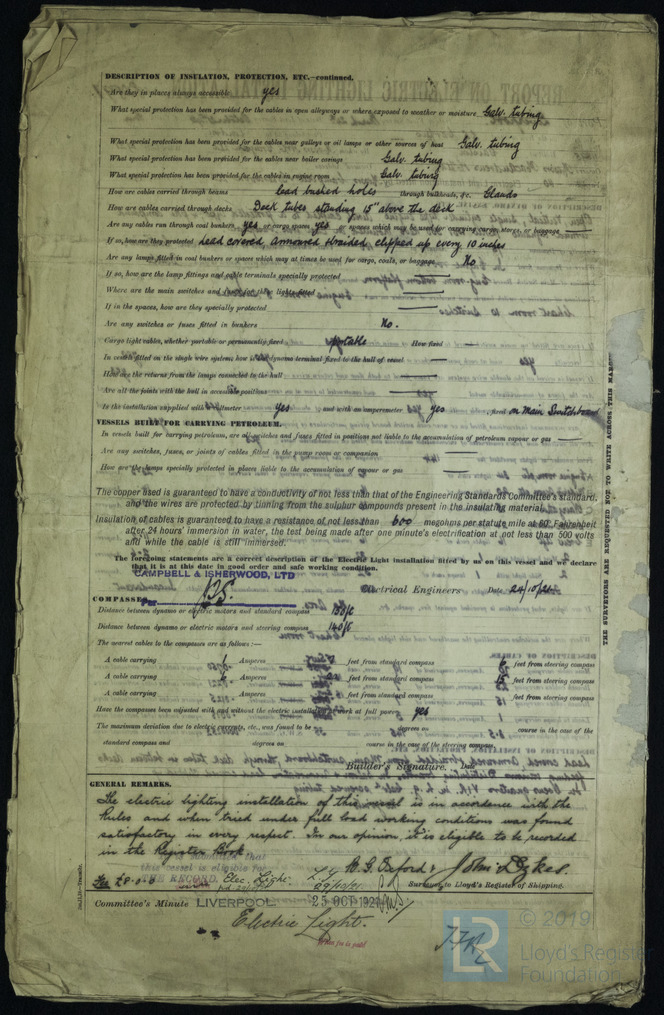 DESCRIPTION OF INSULATION, PROTECTION, ETC.—continued.
Are they in places always accessible yes
What special protection has been provided for the cables in open alleyways or where exposed to weather or moisture Galv. tubing
What special protection has been provided for the cables near galleys or oil lamps or other sources of heat Galv. tubing
What special protection has been provided for the cables near boiler casings Galv. tubing
What special protection has been provided for the cables in engine room Galv. tubing
How are cables carried through beams lead bushed holes through bulkheads, &c. Glands
How are cables carried through decks Deck tubes standing 15" above the deck
Are any cables run through coal bunkers yes or cargo spaces yes or spaces which may be used for carrying cargo, stores, or baggage —
If so, how are they protected Lead covered, armoured braided, clipped up every 10 inches
Are any lamps fitted in coal bunkers or spaces which may at times be used for cargo, coals, or baggage No.
If so, how are the lamp fittings and cable terminals specially protected —
Where are the main switches and fuses for these lights fitted —
If in the spaces, how are they specially protected —
Are any switches or fuses fitted in bunkers No.
Cargo light cables, whether portable or permanently fixed portable How fixed —
In vessels fitted on the single wire system, how is dynamo terminal fixed to the hull of vessel —
How are the returns from the lamps connected to the hull —
Are all the joints with the hull in accessible positions —
Is the installation supplied with voltmeter yes and with an amperemeter yes , fixed on Main Switchboard
VESSELS BUILT FOR CARRYING PETROLEUM.
In vessels built for carrying petroleum, are all switches and fuses fitted in positions not liable to the accumulation of petroleum vapour or gas —
Are any switches, fuses, or joints of cables fitted in the pump room or companion —
How are the lamps specially protected in places liable to the accumulation of vapour or gas —
The copper used is guaranteed to have a conductivity of not less than that of the Engineering Standards Committee's standard,
and the wires are protected by tinning from the sulphur compounds present in the insulating material.
Insulation of cables is guaranteed to have a resistance of not less than 600 megohms per statute mile at 60° Fahrenheit
after 24 hours' immersion in water, the test being made after one minute's electrification at not less than 500 volts
and while the cable is still immersed.
The foregoing statements are a correct description of the Electric Light installation fitted by us on this vessel and we declare
that it is at this date in good order and safe working condition.
CAMPBELL & ISHERWOOD, LTD
Electrical Engineers Date
COMPASSES.
Distance between dynamo or electric motors and standard compass
Distance between dynamo or electric motors and steering compass
The nearest cables to the compasses are as follows:—
A cable carrying 1 Amperes feet from standard compass 6 feet from steering compass
A cable carrying Amperes feet from standard compass 15 feet from steering compass
A cable carrying Amperes feet from standard compass feet from steering compass
Have the compasses been adjusted with and without the electric installation at work at full power yes
The maximum deviation due to electric currents, etc., was found to be degrees on course in the case of the
standard compass and degrees on course in the case of the steering compass.
Builder's Signature. Date
GENERAL REMARKS.
The electric lighting installation of this vessel is in accordance with the
Rules and when tried under full load working conditions was found
satisfactory in every respect. In our opinion, it is eligible to be recorded
in the Register Book.
that
this vessel is eligible for
THE RECORD. Elec. Light.
John Dykes.
Surveyor to Lloyd's Register of Shipping.
Committee's Minute LIVERPOOL 25 OCT 1921
Electric Light.
THE SURVEYORS ARE REQUESTED NOT TO WRITE ACROSS THIS MARGIN.
© 2019
LR
Lloyd's Register
Foundation